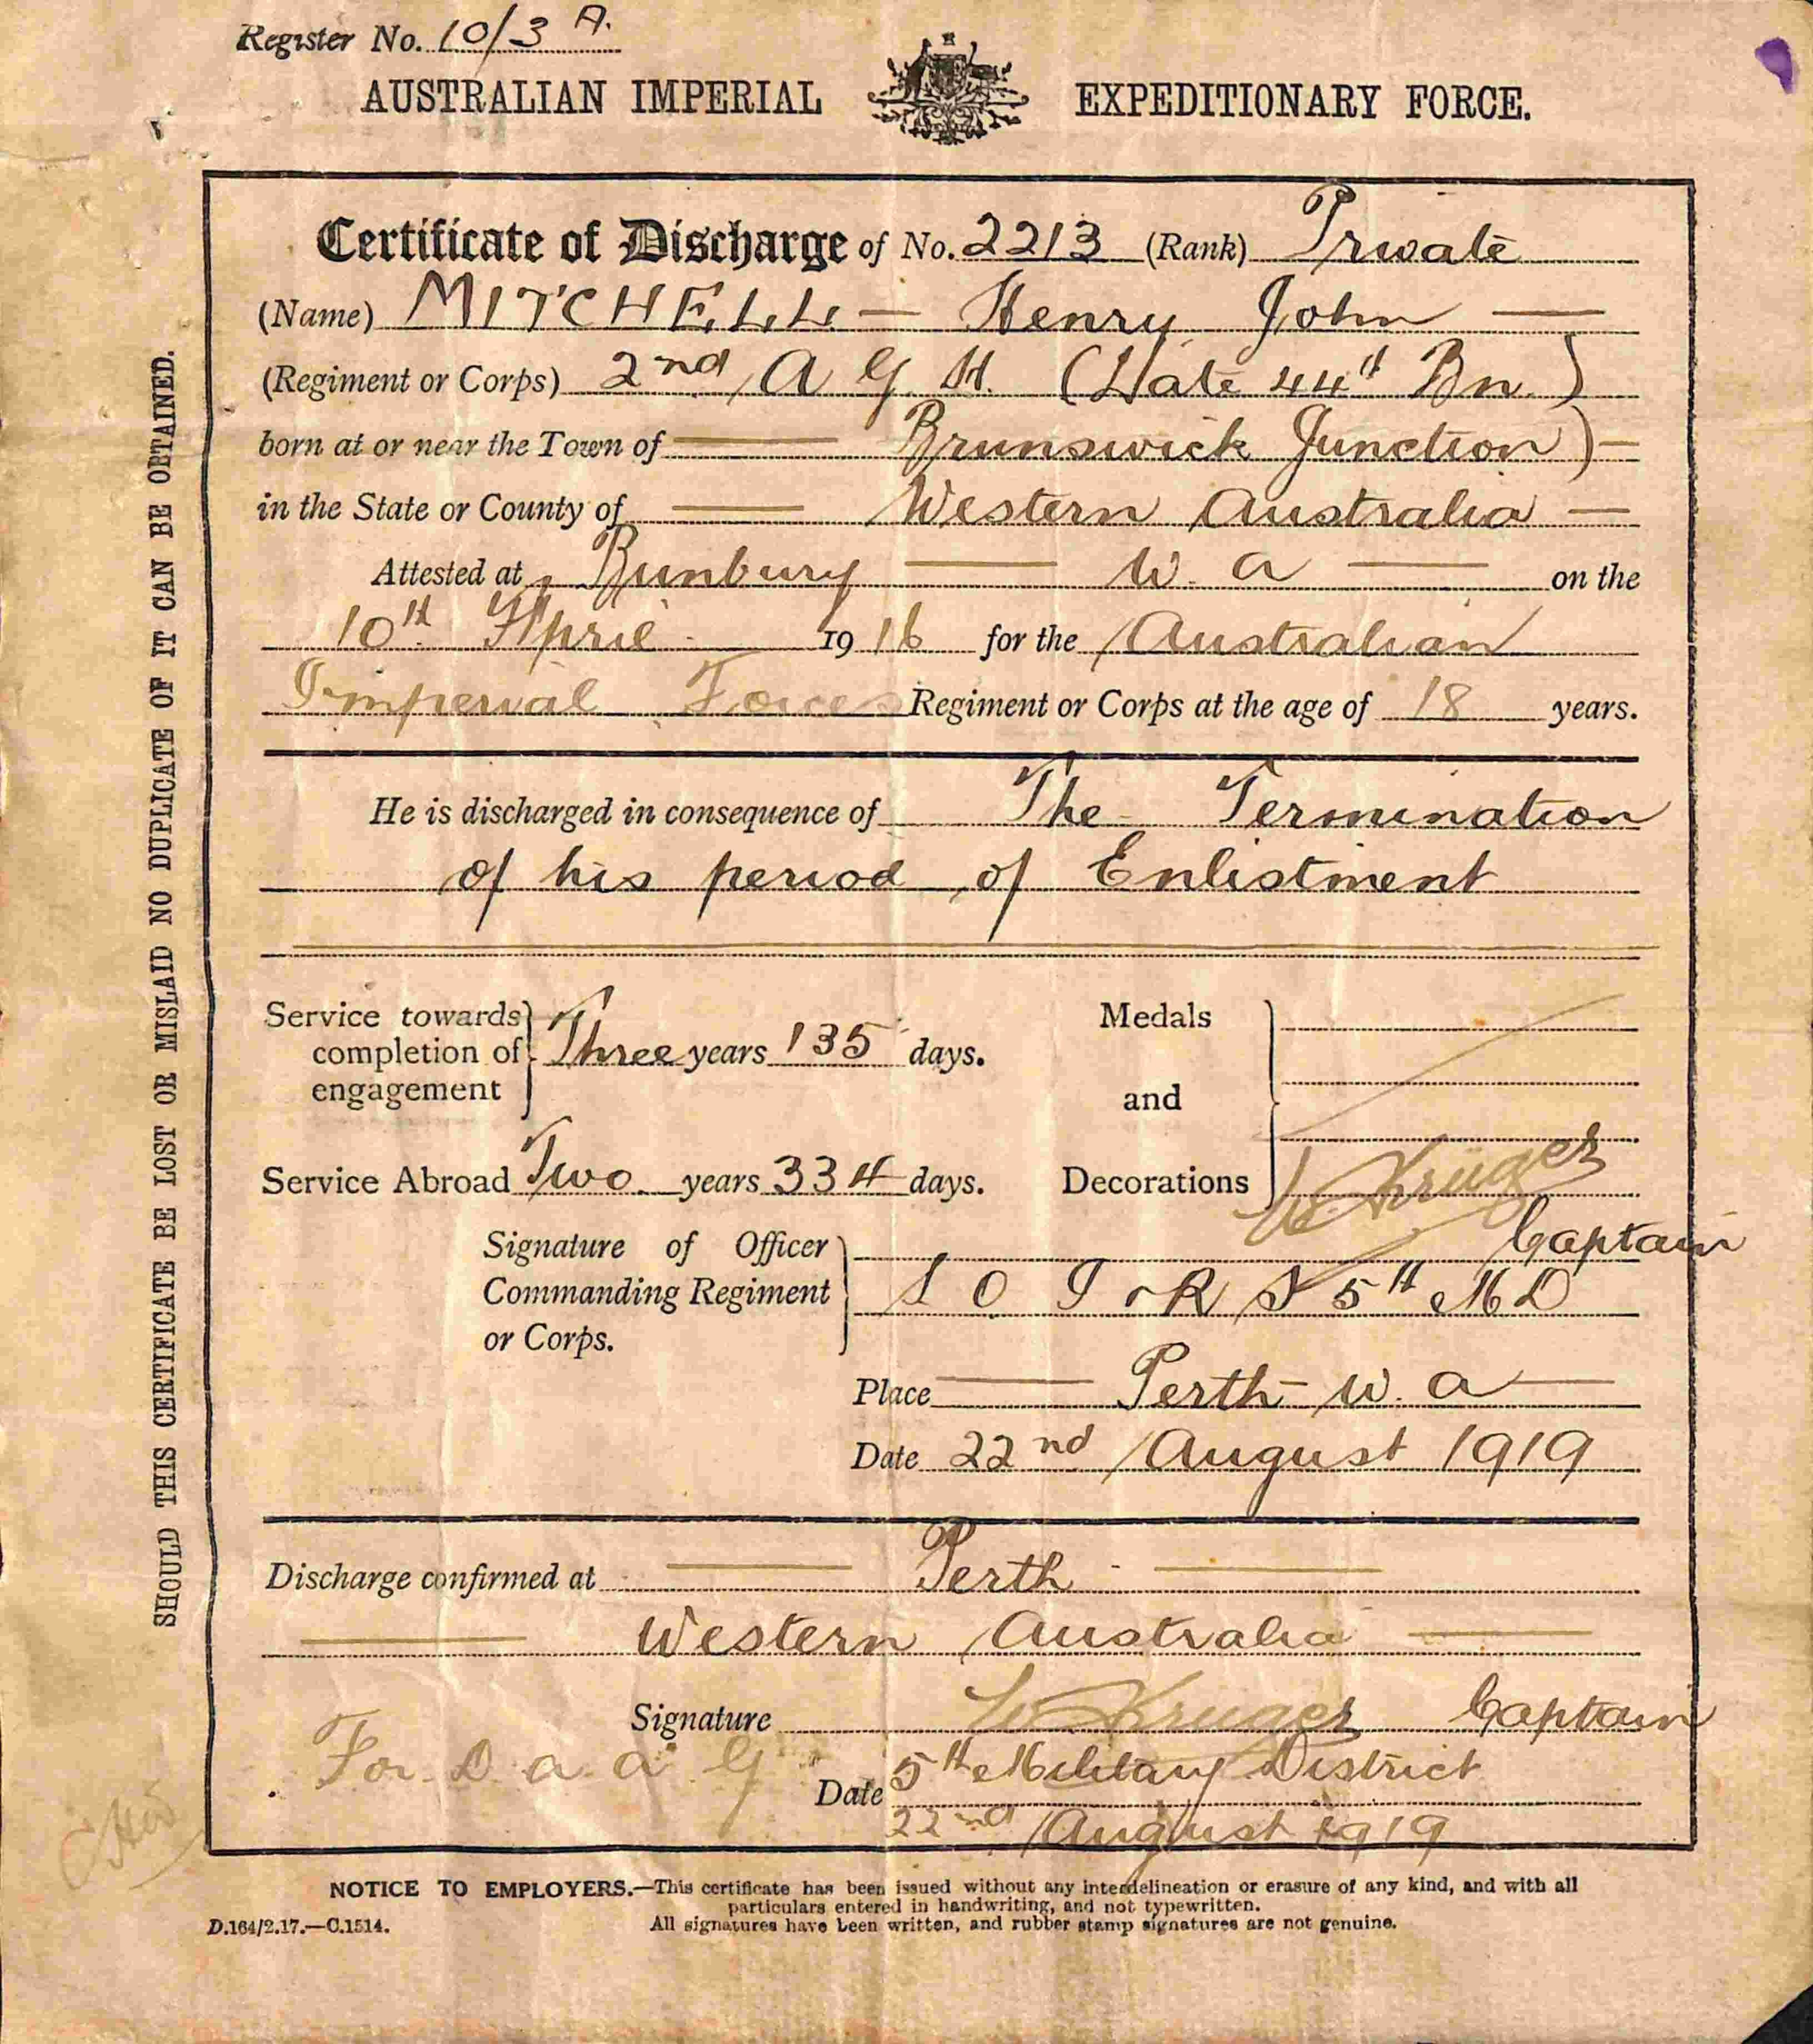 Register No. 10/3 A.
AUSTRALIAN IMPERIAL EXPEDITIONARY FORCE.
Certificate of Discharge of No. 2213 (Rank) Private
(Name) MITCHELL — Henry John —
(Regiment or Corps) 2nd A G H. (Late 44th Bn.)
born at or near the Town of — Brunswick Junction) —
in the State or County of — Western Australia —
Attested at Bunbury — W. A — on the
10th April 1916 for the Australian
Imperial Forces Regiment or Corps at the age of 18 years.
He is discharged in consequence of The Termination
of his period of Enlistment
Service towards completion of engagement } Three years 135 days.
Medals and Decorations
Service Abroad Two years 334 days.
Kruger
Captain
Signature of Officer Commanding Regiment or Corps.
S O I & R S 5th M D
Place — Perth — W. A —
Date 22nd August 1919
Discharge confirmed at — Perth —
— Western Australia —
Signature Kruger Captain
For D a a G 5th Military District
Date 22nd August 1919
NOTICE TO EMPLOYERS.—This certificate has been issued without any interdelineation or erasure of any kind, and with all
particulars entered in handwriting, and not typewritten.
D.164/2.17.—C.1514. All signatures have been written, and rubber stamp signatures are not genuine.
SHOULD THIS CERTIFICATE BE LOST OR MISLAID NO DUPLICATE OF IT CAN BE OBTAINED.